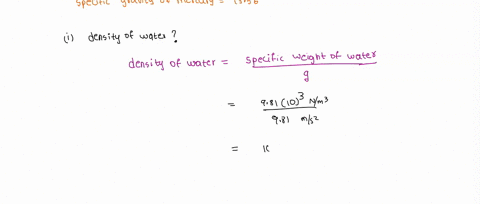 specific gravity of mercury = 13.56
(i) density of water ?
density of water = specific weight of water / g
= 9.81 (10)³ N/m³ / 9.81 m/s²
= 1